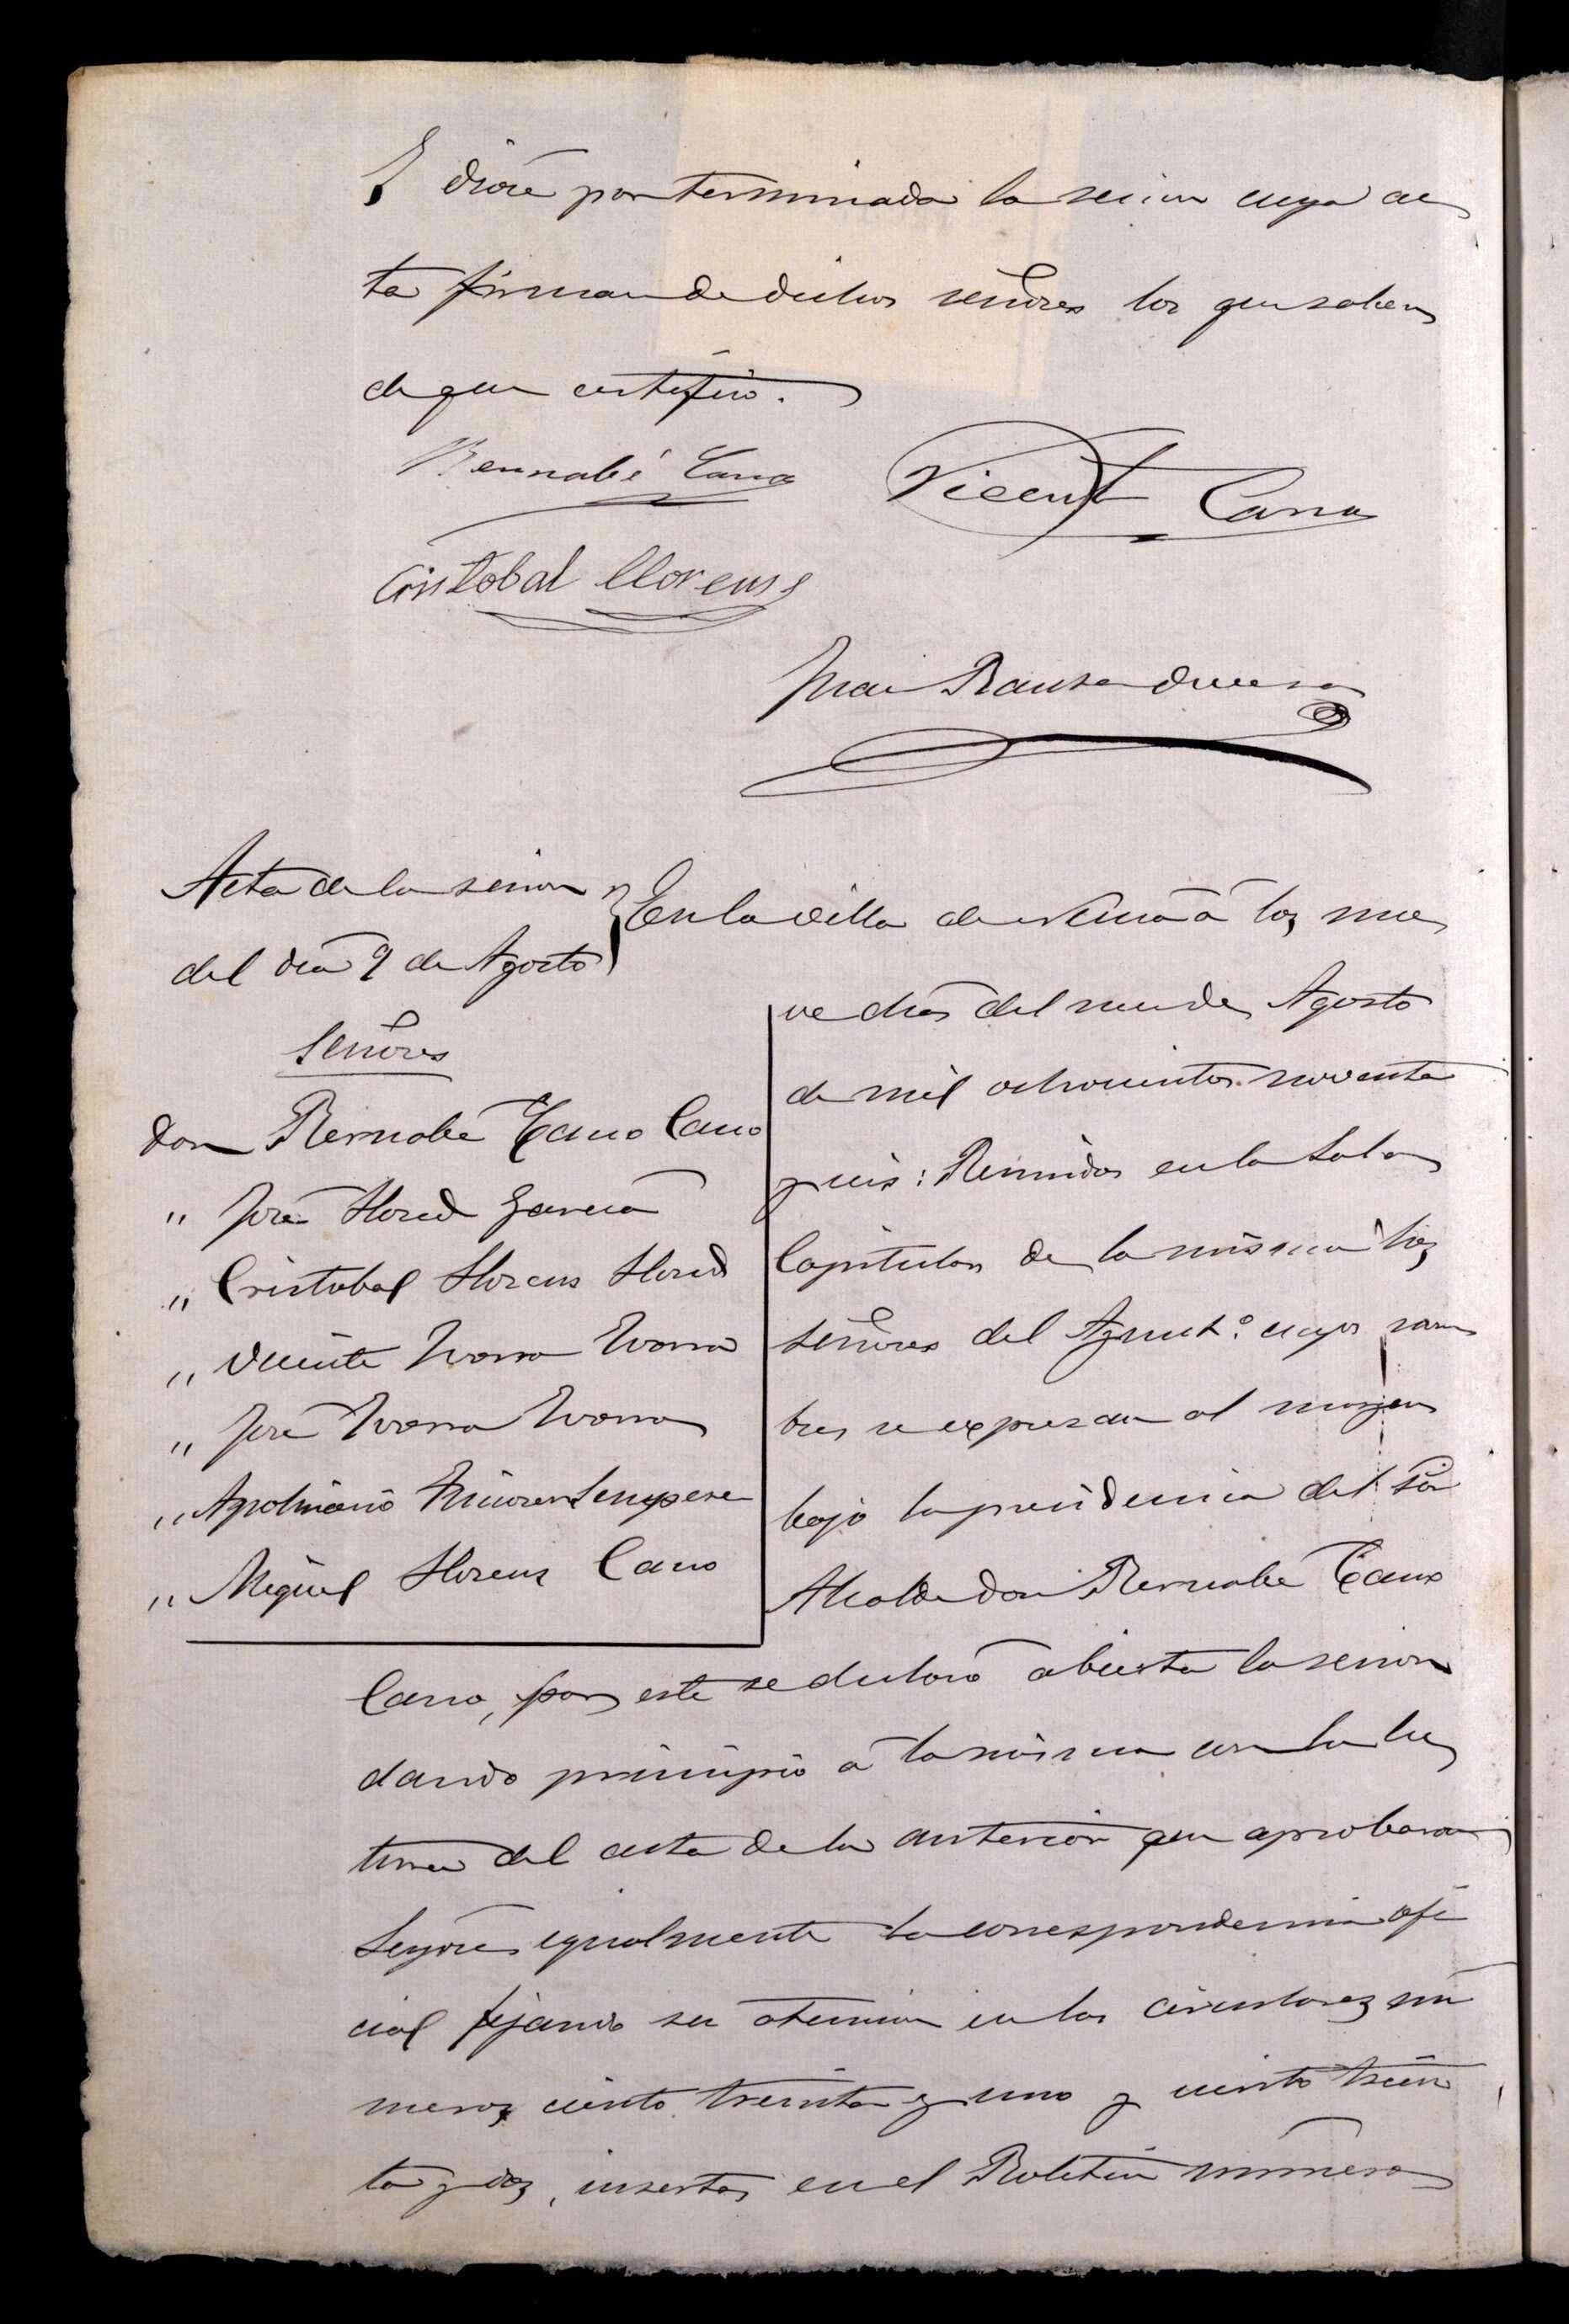 Y dióse por terminada la sesion cuya ac
ta firman de dichos señores los que saben
de que certifico.
Bernabé Cano Vicente Cano
Cristobal Llorens
Juan Bauta
Acta de la sesion
del dia 9 de Agosto
Señores
Don Bernabé Cano Cano
" José Lloret Garcia
" Cristobal Llorens Lloret
" Vicente Ivorra Ivorra
" José Ivorra Ivorra
" Apolinario Sempere
" Miguel Llorens Cano
En la villa de á los nue
ve dias del mes de Agosto
de mil ochocientos noventa
y seis: Reunidos en la Sala
Capitular de la misma los
señores del Ayunt.º cuyos nom
bres se expresan al margen
bajo la presidencia del Sor
Alcalde Don Bernabé Cano
Cano, por este se declaró abierta la sesion
dando principio á la misma con la lec
tura del acta de la anterior que aprobaron
Leyóse igualmente la correspondencia ofi
cial fijando su atencion en las circulares nú
meros ciento treinta y uno y ciento trein
ta y dos, insertas en el Boletin número